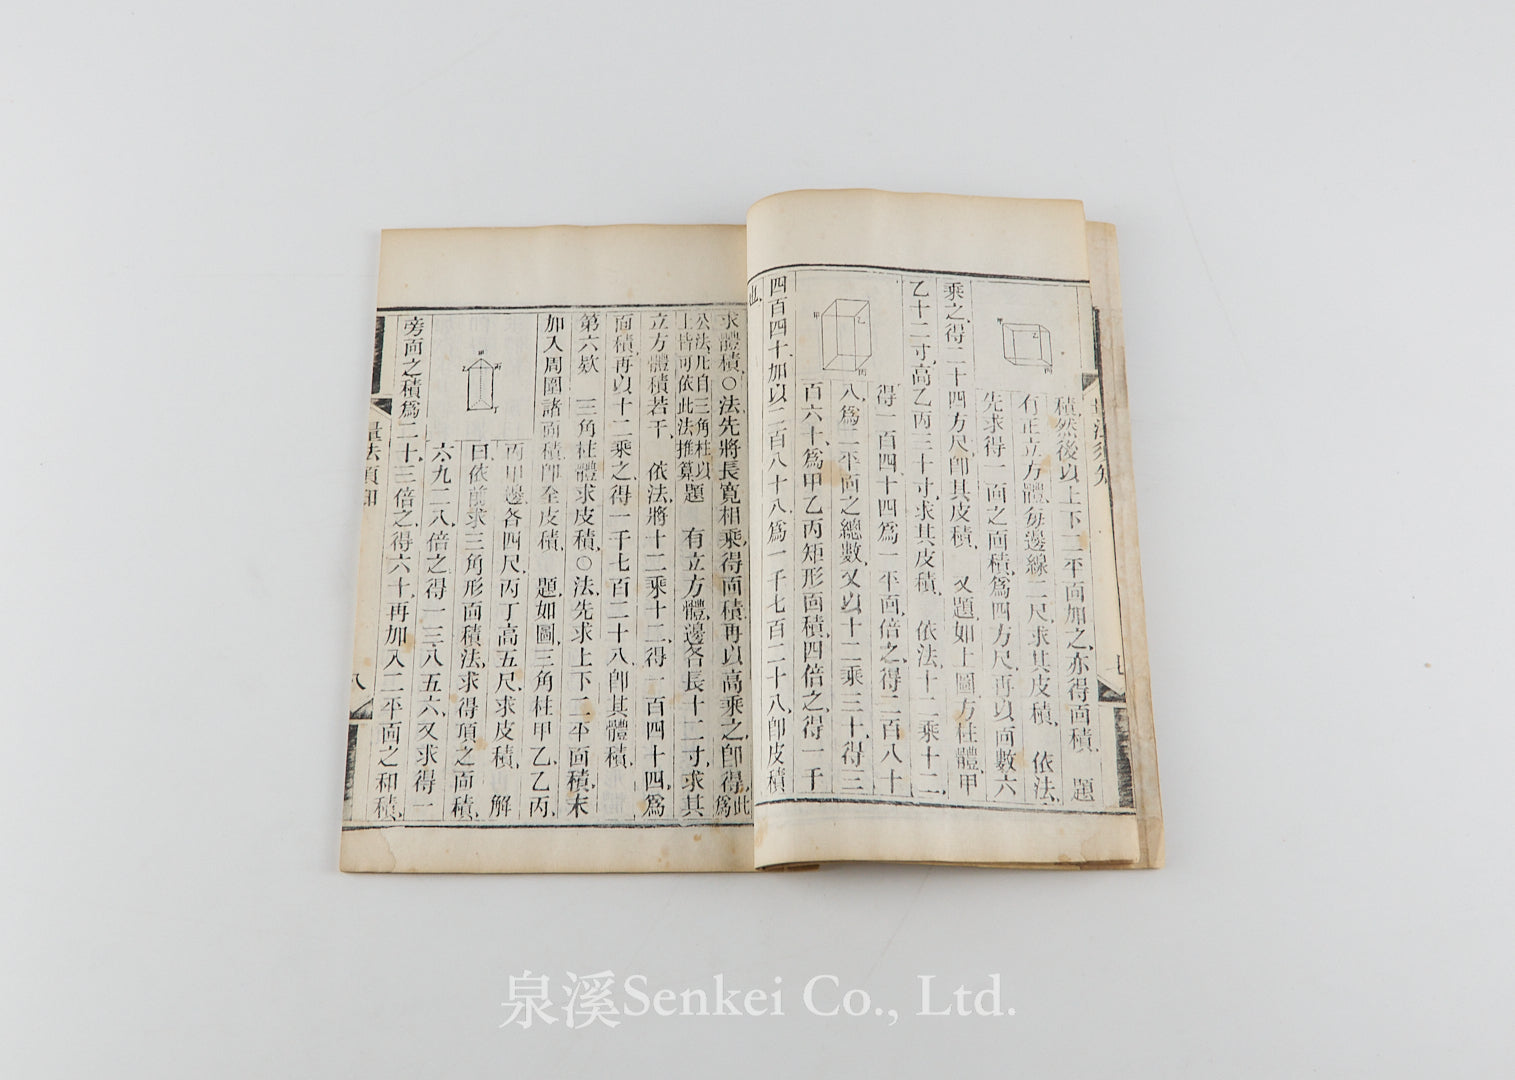 積然後以上下二平面加之亦得面積 題
有正立方體每邊線二尺求其皮積 依法
先求得一面之面積爲四方尺再以面數六
乘之得二十四方尺卽其皮積 又題如上圖方柱體甲
乙十二寸高乙丙三十寸求其皮積 依法十二乘十二
得一百四十四爲一平面倍之得二百八十
八爲二平面之總數又以十二乘三十得三
百六十爲甲乙丙矩形面積四倍之得一千
四百四十加以二百八十八爲一千七百二十八卽皮積
也
甲 乙 丙
甲 丙
七
求體積○法先將長寬相乘得面積再以高乘之卽得此爲
公法凡自三角柱以
上皆可依此法推算 題 有立方體邊各長十二寸求其
立方體積若干 依法將十二乘十二得一百四十四爲
面積再以十二乘之得一千七百二十八卽其體積
第六欵 三角柱體求皮積○法先求上下二平面積末
加入周圍諸面積卽全皮積 題如圖三角柱甲乙乙丙
丙甲邊各四尺丙丁高五尺求皮積 解
曰依前求三角形面積法求得頂之面積
六九二八倍之得一三八五六又求得一
旁面之積爲二十三倍之得六十再加入二平面之和積
甲 乙 丙 丁
量法須知
八
泉溪Senkei Co., Ltd.